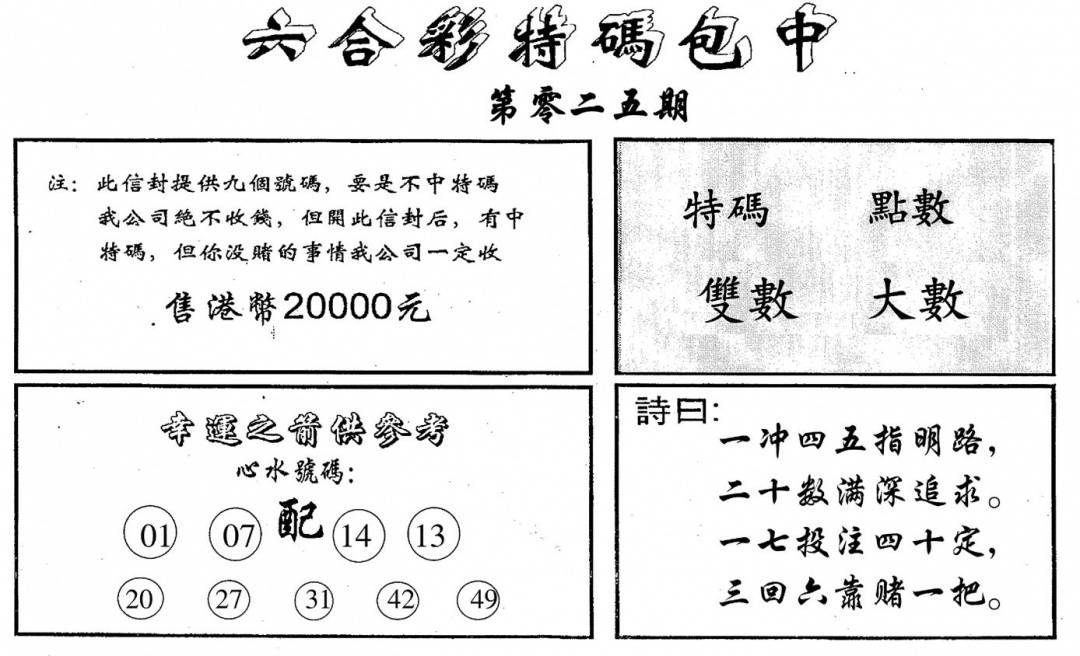 六合彩特碼包中
第零二五期
注：此信封提供九個號碼，要是不中特碼
我公司絕不收錢，但開此信封后，有中
特碼，但你没賭的事情我公司一定收
售港幣20000元
特碼 點數
雙數 大數
幸運之箭供參考
心水號碼：
01 07 配 14 13
20 27 31 42 49
詩曰：
一冲四五指明路，
二十数满深追求。
一七投注四十定，
三回六靠赌一把。